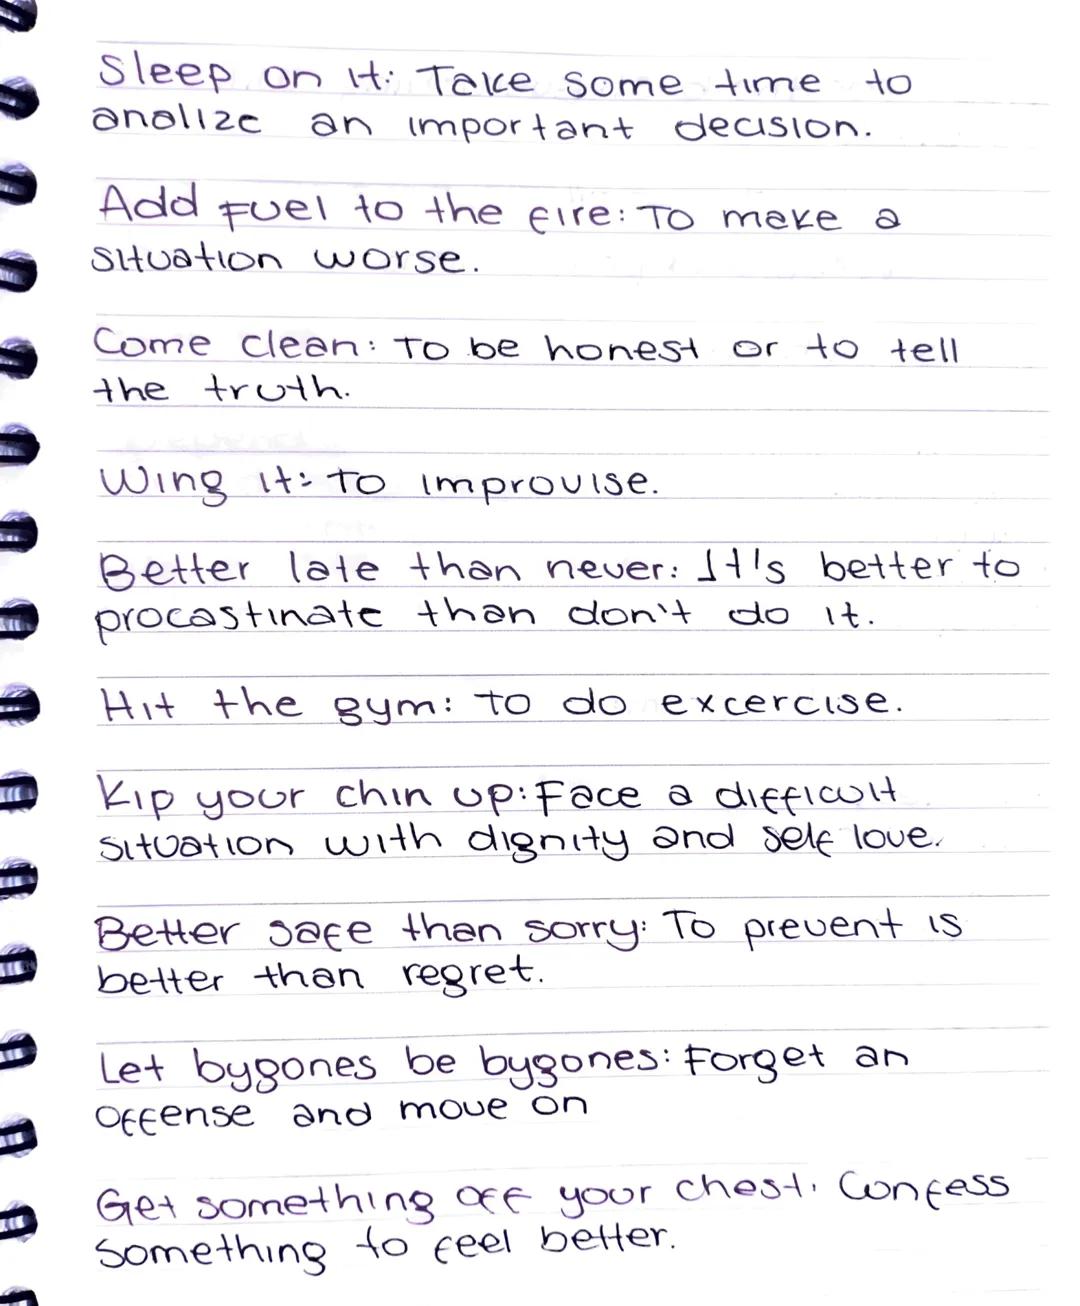 Sleep on it: Take some time to
analize an important decision.
Add fuel to the fire: To make a
situation worse.
Come clean: To be honest or to tell
the truth.
Wing it: To improvise.
Better late than never: It's better to
procastinate than don't do it.
Hit the gym: To do excercise.
Kip your chin up: Face a difficult
situation with dignity and self love.
Better safe than sorry: To prevent is
better than regret.
Let bygones be bygones: Forget an
offense and move on
Get something off your chest. Confess
something to feel better.